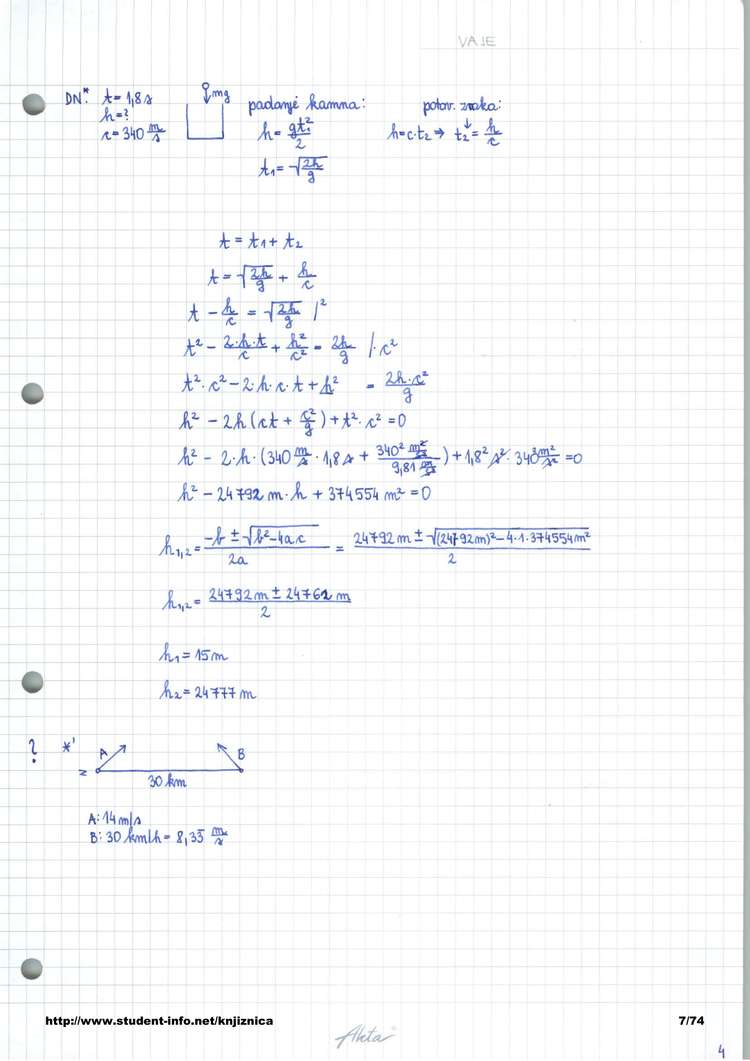 VAJE
DN*: t = 1,8 s
h = ?
c = 340 m/s
mg
padanje kamna:
h = gt₁²/2
t₁ = √(2h/g)
potov. zvoka:
h = c·t₂ ⇒ t₂ = h/c
t = t₁ + t₂
t = √(2h/g) + h/c
t - h/c = √(2h/g) /²
t² - 2·h·t/c + h²/c² = 2h/g /·c²
t²·c² - 2·h·c·t + h² = 2h·c²/g
h² - 2h(ct + c²/g) + t²·c² = 0
h² - 2·h·(340 m/s · 1,8 s + 340² m²/s²/9,81 m/s²) + 1,8² s²· 340² m²/s² = 0
h² - 24792 m·h + 374554 m² = 0
h₁,₂ = (-b ± √(b²-4ac))/2a = (24792 m ± √((24792 m)² - 4·1·374554 m²))/2
h₁,₂ = (24792 m ± 24762 m)/2
h₁ = 15 m
h₂ = 24777 m
? *'
A B
z
30 km
A: 14 m/s
B: 30 km/h = 8,33 m/s
http://www.student-info.net/knjiznica 7/74
Akta
4